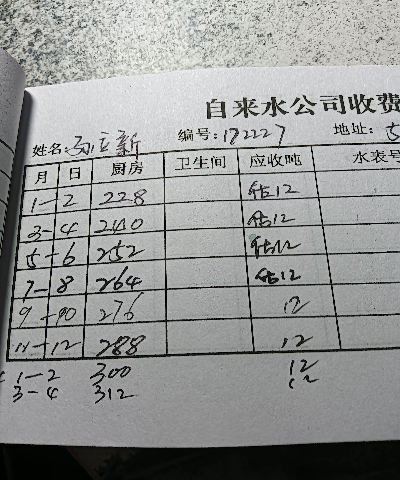 自来水公司收费
姓名: 编号:172227 地址:
月 日 厨房 卫生间 应收吨 水表号
1-2 228 估12
3-4 240 估12
5-6 252 估12
7-8 264 估12
9-10 276 12
11-12 288 12
1-2 300 12
3-4 312 12